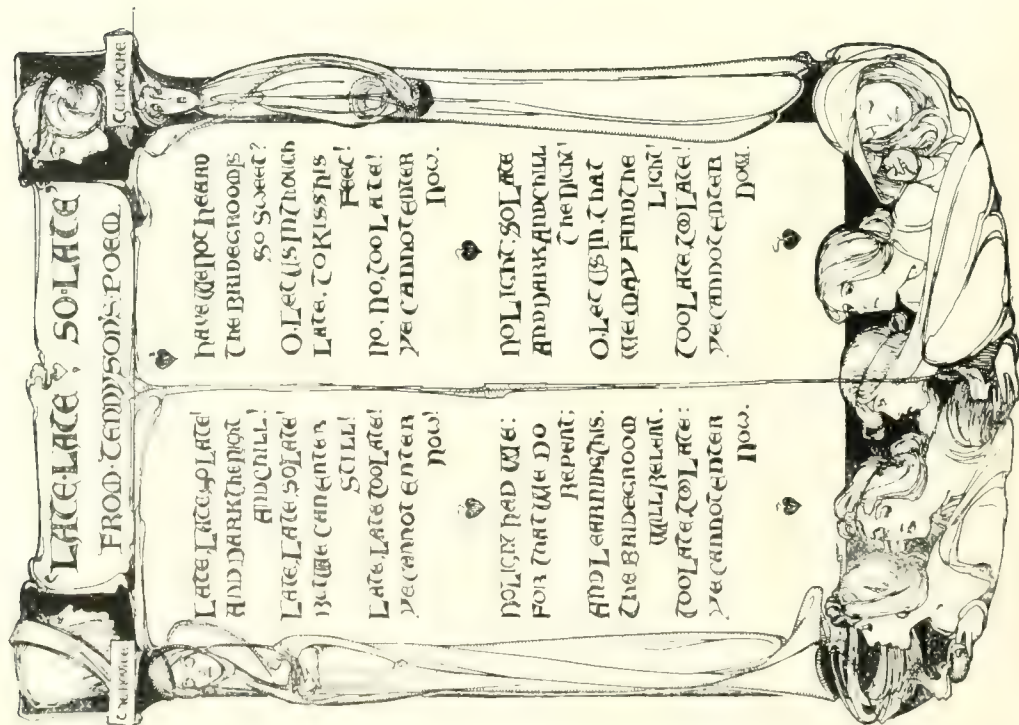 THE NOVICE
"LATE·LATE, SO·LATE"
GUINEVERE
FROM·TENNYSON'S·POEM
LATE, LATE, SO LATE!
AND DARK THE NIGHT
AND CHILL!
LATE, LATE, SO LATE!
BUT WE CAN ENTER
STILL!
LATE, LATE, TOO LATE!
YE CANNOT ENTER
NOW!
NO LIGHT HAD WE:
FOR THAT WE DO
REPENT;
AND LEARNING THIS,
THE BRIDEGROOM
WILL RELENT.
TOO LATE, TOO LATE:
YE CANNOT ENTER
NOW.
HAVE WE NOT HEARD
THE BRIDEGROOM IS
SO SWEET?
O·LET US IN, THOUGH
LATE, TO KISS HIS
FEET!
NO, NO, TOO LATE!
YE CANNOT ENTER
NOW.
NO LIGHT: SO LATE
AND DARK AND CHILL
THE NIGHT!
O·LET US IN, THAT
WE MAY FIND THE
LIGHT!
TOO LATE, TOO LATE!
YE CANNOT ENTER
NOW.